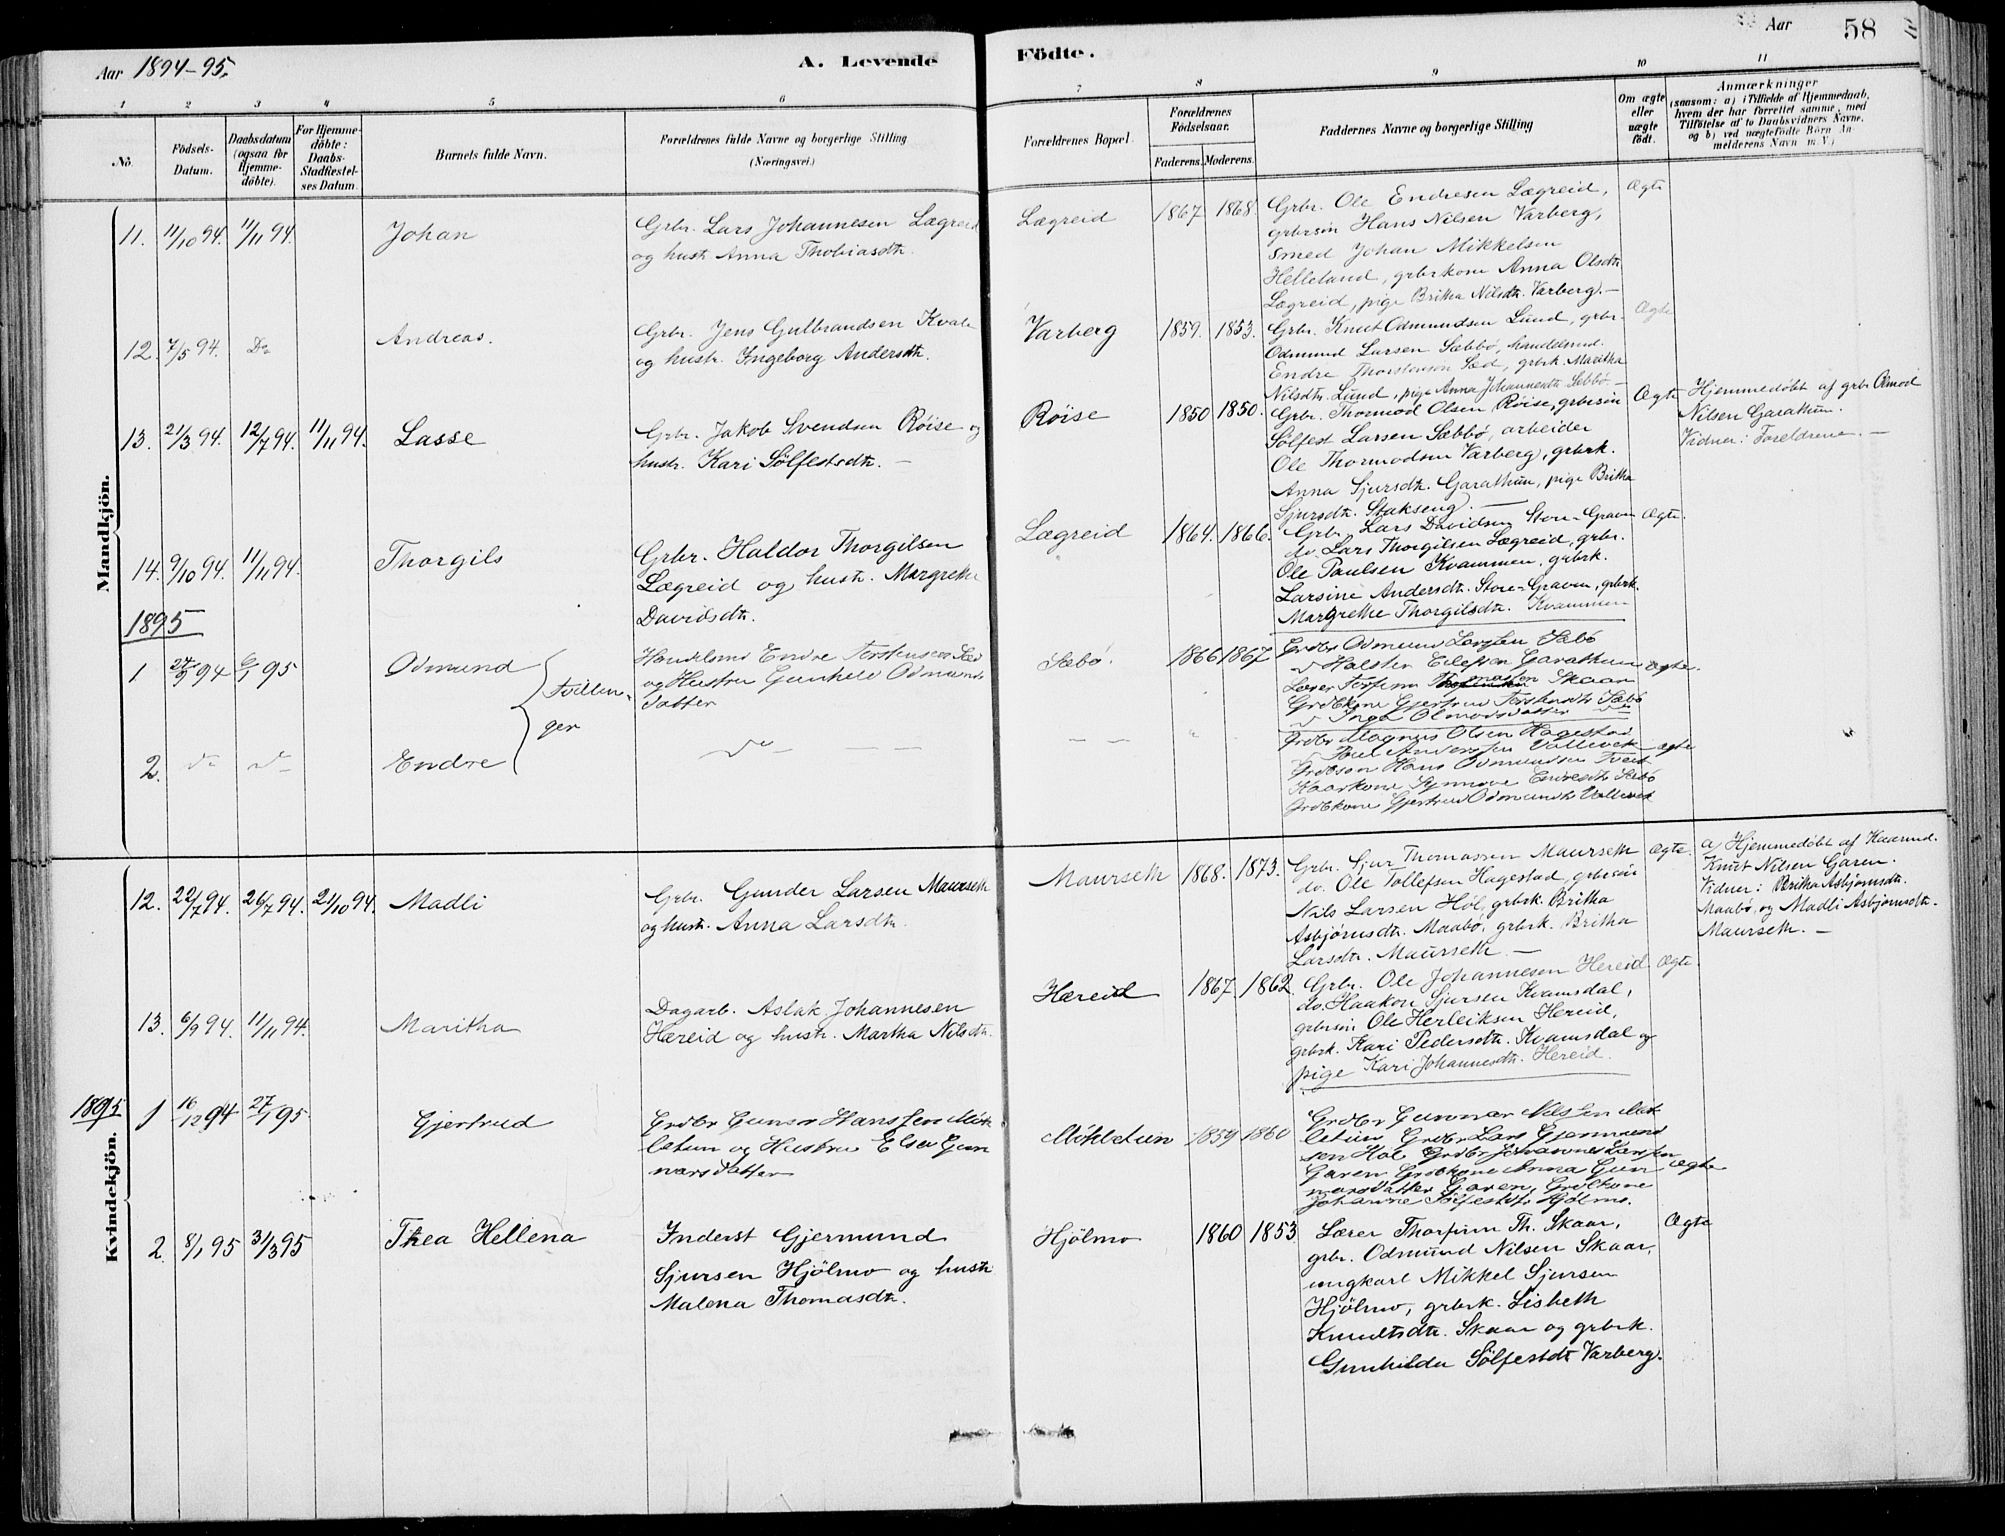 Aar 1894-95.
A. Levende
Födte.
Aar
58
1 2 3 4 5 6 7 8 9 10 11
No.
Födsels-
Datum.
Daabsdatum
(ogsaa for
Hjemme-
döbte).
For Hjemme-
döbte:
Daabs-
Stadfæstel-
ses Datum.
Barnets fulde Navn.
Forældrenes fulde Navne og borgerlige Stilling
(Næringsvei.)
Forældrenes Bopæl.
Forældrenes
Födselsaar.
Faderens. Moderens.
Faddernes Navne og borgerlige Stilling
Om ægte
eller
uægte
födt.
Anmærkninger
(saasom: a) i Tilfælde af Hjemmedaab,
hvem der har forrettet samme, med
Tilföielse af to Daabsvidners Navne,
og b) ved uægtefödte Börn An-
melderens Navn m. V.)
Mandkjön.
11. 11/10 94. 11/11 94.
Johan
Grbr. Lars Johannesen Lægreid
og hustr. Anna Thobiasdtr.
Lægreid
1867. 1868.
Grbr. Ole Endresen Lægreid,
grbrsön Hans Nilsen Varberg,
Smed Johan Mikkelsen
Helleland, grbrkone Anna Olsdtr.
Lægreid, pige Britha Nilsdtr. Varberg.—
Ægte
12. 7/5 94. Do
Andreas.
Grbr. Jens Gulbrandsen Kvale
og hustr. Ingeborg Andersdtr.
Varberg
1859. 1853.
Grbr. Knut Odmundsen Lund, grbr.
Odmund Larsen Sæbbö, handelsmd.
Endre Thorstensen Sæd, grbrk. Maritha
Nilsdtr. Lund, pige Anna Johannesdtr. Sæbbö.—
Ægte
13. 21/3 94. 12/7 94. 11/11 94.
Lasse
Grbr. Jakob Svendsen Röise og
hustr. Kari Sölfestsdtr. —
Röise
1850 1850.
Grbr. Thormod Olsen Röise, grbrsön
Sölfest Larsen Sæbbö, arbeider
Ole Thormodsen Varberg, grbrk.
Anna Sjursdtr. Garathun, pige Britha
Sjursdtr. Stakseng. —
Ægte
Hjemmedöbt af grbr. Olmod
Nilsen Garathun.
Vidner: Forældrene. —
14. 9/10 94. 11/11 94.
Thorgils
Grbr. Haldor Thorgilsen
Lægreid og hustr. Margrethe
Davidsdtr.
Lægreid
1864. 1866.
Grbr. Lars Davidsen Store-Graven
do. Lars Thorgilsen Lægreid, grbr.
Ole Paulsen Kvammen, grbrk.
Larsine Andersdtr. Store-Graven, grbrk.
Margrethe Thorgilsdtr. Kvammen
Ægte.
1895
1 94 6/1 95
Odmund
Tvillin-
ger
Handelsmd Endre Torstensen Sæd
og Hustru Gunhild Odmunds
Datter
Sæbö.
1866 1867
Grdbr Odmund Larssen Sæbö
Halsten Eilefsen Garathun
Lærer Torfinn Thomassen Skaar
Grdbkone Gjertrud Torstensdtr Sæbö
Inga Olmodsdatter
Ægte.
2. do do
Endre
do
Grdbr Magnus Olsen Hagestad
Poul Anderssen Vallevik
Grdbrson Hans Odmundsen Tveit
Kaarkone Synnöve Endresdtr Sæbö
Grdbkone Gjertrud Odmundsdtr Vallevik
ægte
Kvindekjön.
12. 22/7 94. 26/7 94. 21/10 94.
Madli
Grbr. Gunder Larsen Maurseth
og hustr. Anna Larsdtr.
Maurseth
1868. 1873.
Grbr. Sjur Thomassen Maurseth
do. Ole Tollefsen Hagestad, grbrsön
Nils Larsen Höl, grbrk. Britha
Asbjörnsdtr. Maabö, grbrk. Britha
Larsdtr. Maurseth. —
Ægte.
a) Hjemmedöbt af Kaarmd.
Knut Nilsen Garen.
Vidner: Britha Asbjörnsdtr.
Maabö, og Madli Asbjörnsdtr.
Maurseth. —
13. 6/9 94. 11/11 94.
Maritha
Dagarb. Aslak Johannesen
Hæreid og hustr. Martha Nilsdtr.
Hæreid
1867. 1862.
Grbr. Ole Johannesen Hereid
do. Haakon Sjursen Kvamsdal,
grbrsön Ole Herleiksen Hereid,
grbrk. Kari Pedersdtr. Kvamsdal og
pige Kari Johannesdtr. Hereid.
Ægte.
1895
1 16/12 94 27/1 95
Gjertrud
Grdbr Gunar Hanssen Mök
letun og Hustru Elsa Gun
narsdatter
Mökletun
1859 1860
Grdbr Gunnar Nilssen Mök
letun Grdbr Lars Gjermund
sen Hol Grdbr Johannes Larssen
Garen Grdbkone Anna Gun
narsdatter Garen, Grdbkone
Johanne Sölfestdtr Hjölmo.
Ægte
2. 8/1 95 31/3 95
Thea Hellena
Inderst Gjermund
Sjursen Hjölmo og hustr.
Malena Thomasdtr.
Hjölmo
1860 1853
Lærer Thorfinn Th. Skaar,
grbr. Odmund Nilsen Skaar,
ungkarl Mikkel Sjursen
Hjölmo, grbrk. Lisbeth
Knudtsdtr. Skaar og grbrk.
Gunhilda Sölfestdtr Varberg.
Ægte